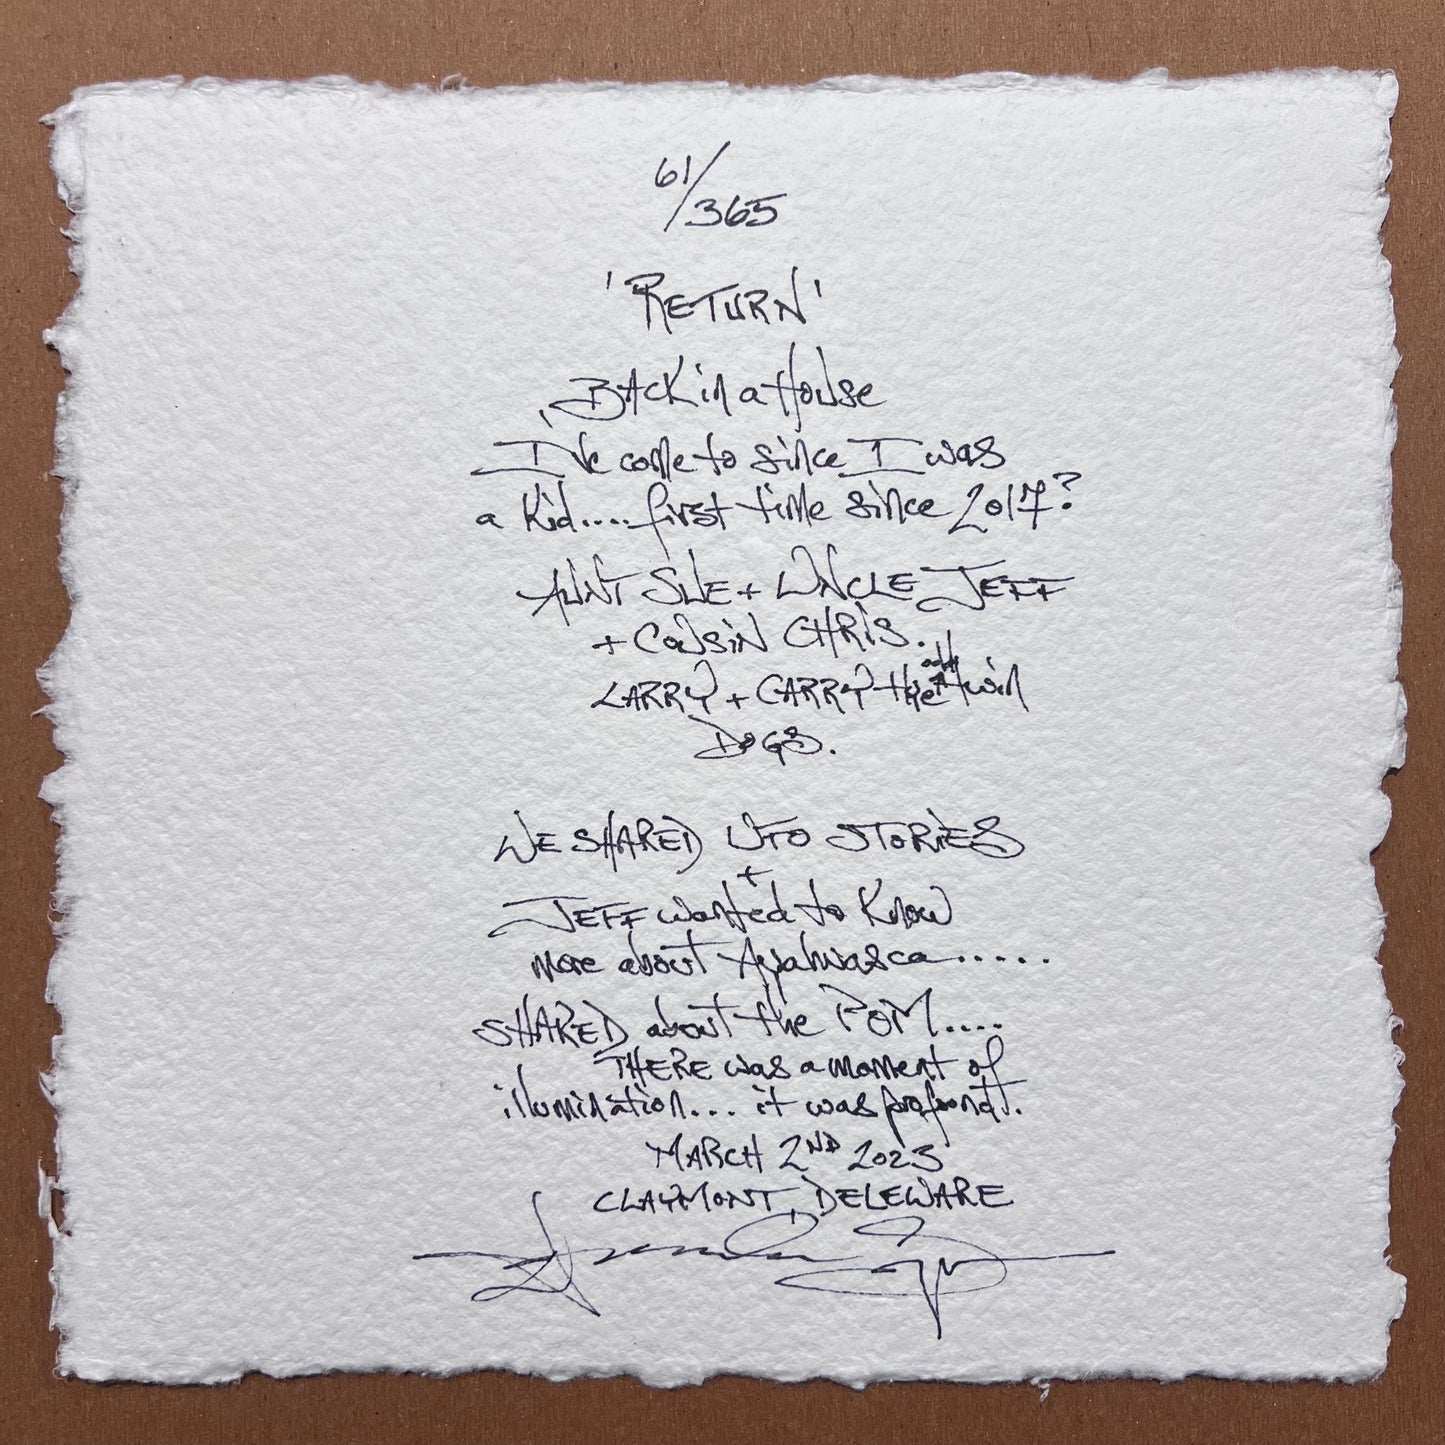 61/365
'RETURN'
BACK in a House
I've come to since I was
a Kid.... first time since 2017?
AUNT SUE + UNCLE JEFF
+ COUSIN CHRIS.
LARRY + GARRY the odd twin
DOGS.
WE SHARED UFO STORIES
+
JEFF wanted to Know
more about Ayahwasca.....
SHARED about the POM....
THERE was a moment of
illumination... it was profound.
MARCH 2ND 2023
CLAYMONT, DELEWARE